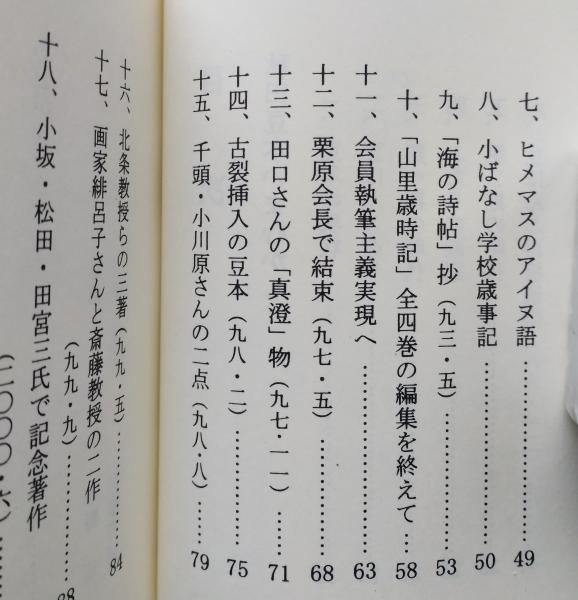 七、ヒメマスのアイヌ語……………………49
八、小ばなし学校歳事記……………………50
九、「海の詩帖」抄（九三・五）……………53
十、「山里歳時記」全四巻の編集を終えて…58
十一、会員執筆主義実現へ…………………63
十二、栗原会長で結束（九七・五）…………68
十三、田口さんの「真澄」物（九七・一一）……71
十四、古裂挿入の豆本（九八・二）…………75
十五、千頭・小川原さんの二点（九八・八）……79
十六、北条教授らの三著（九九・五）…………84
十七、画家緋呂子さんと斎藤教授の二作
（九九・九）……………
十八、小坂・松田・田宮三氏で記念著作
（二〇〇〇・六）……